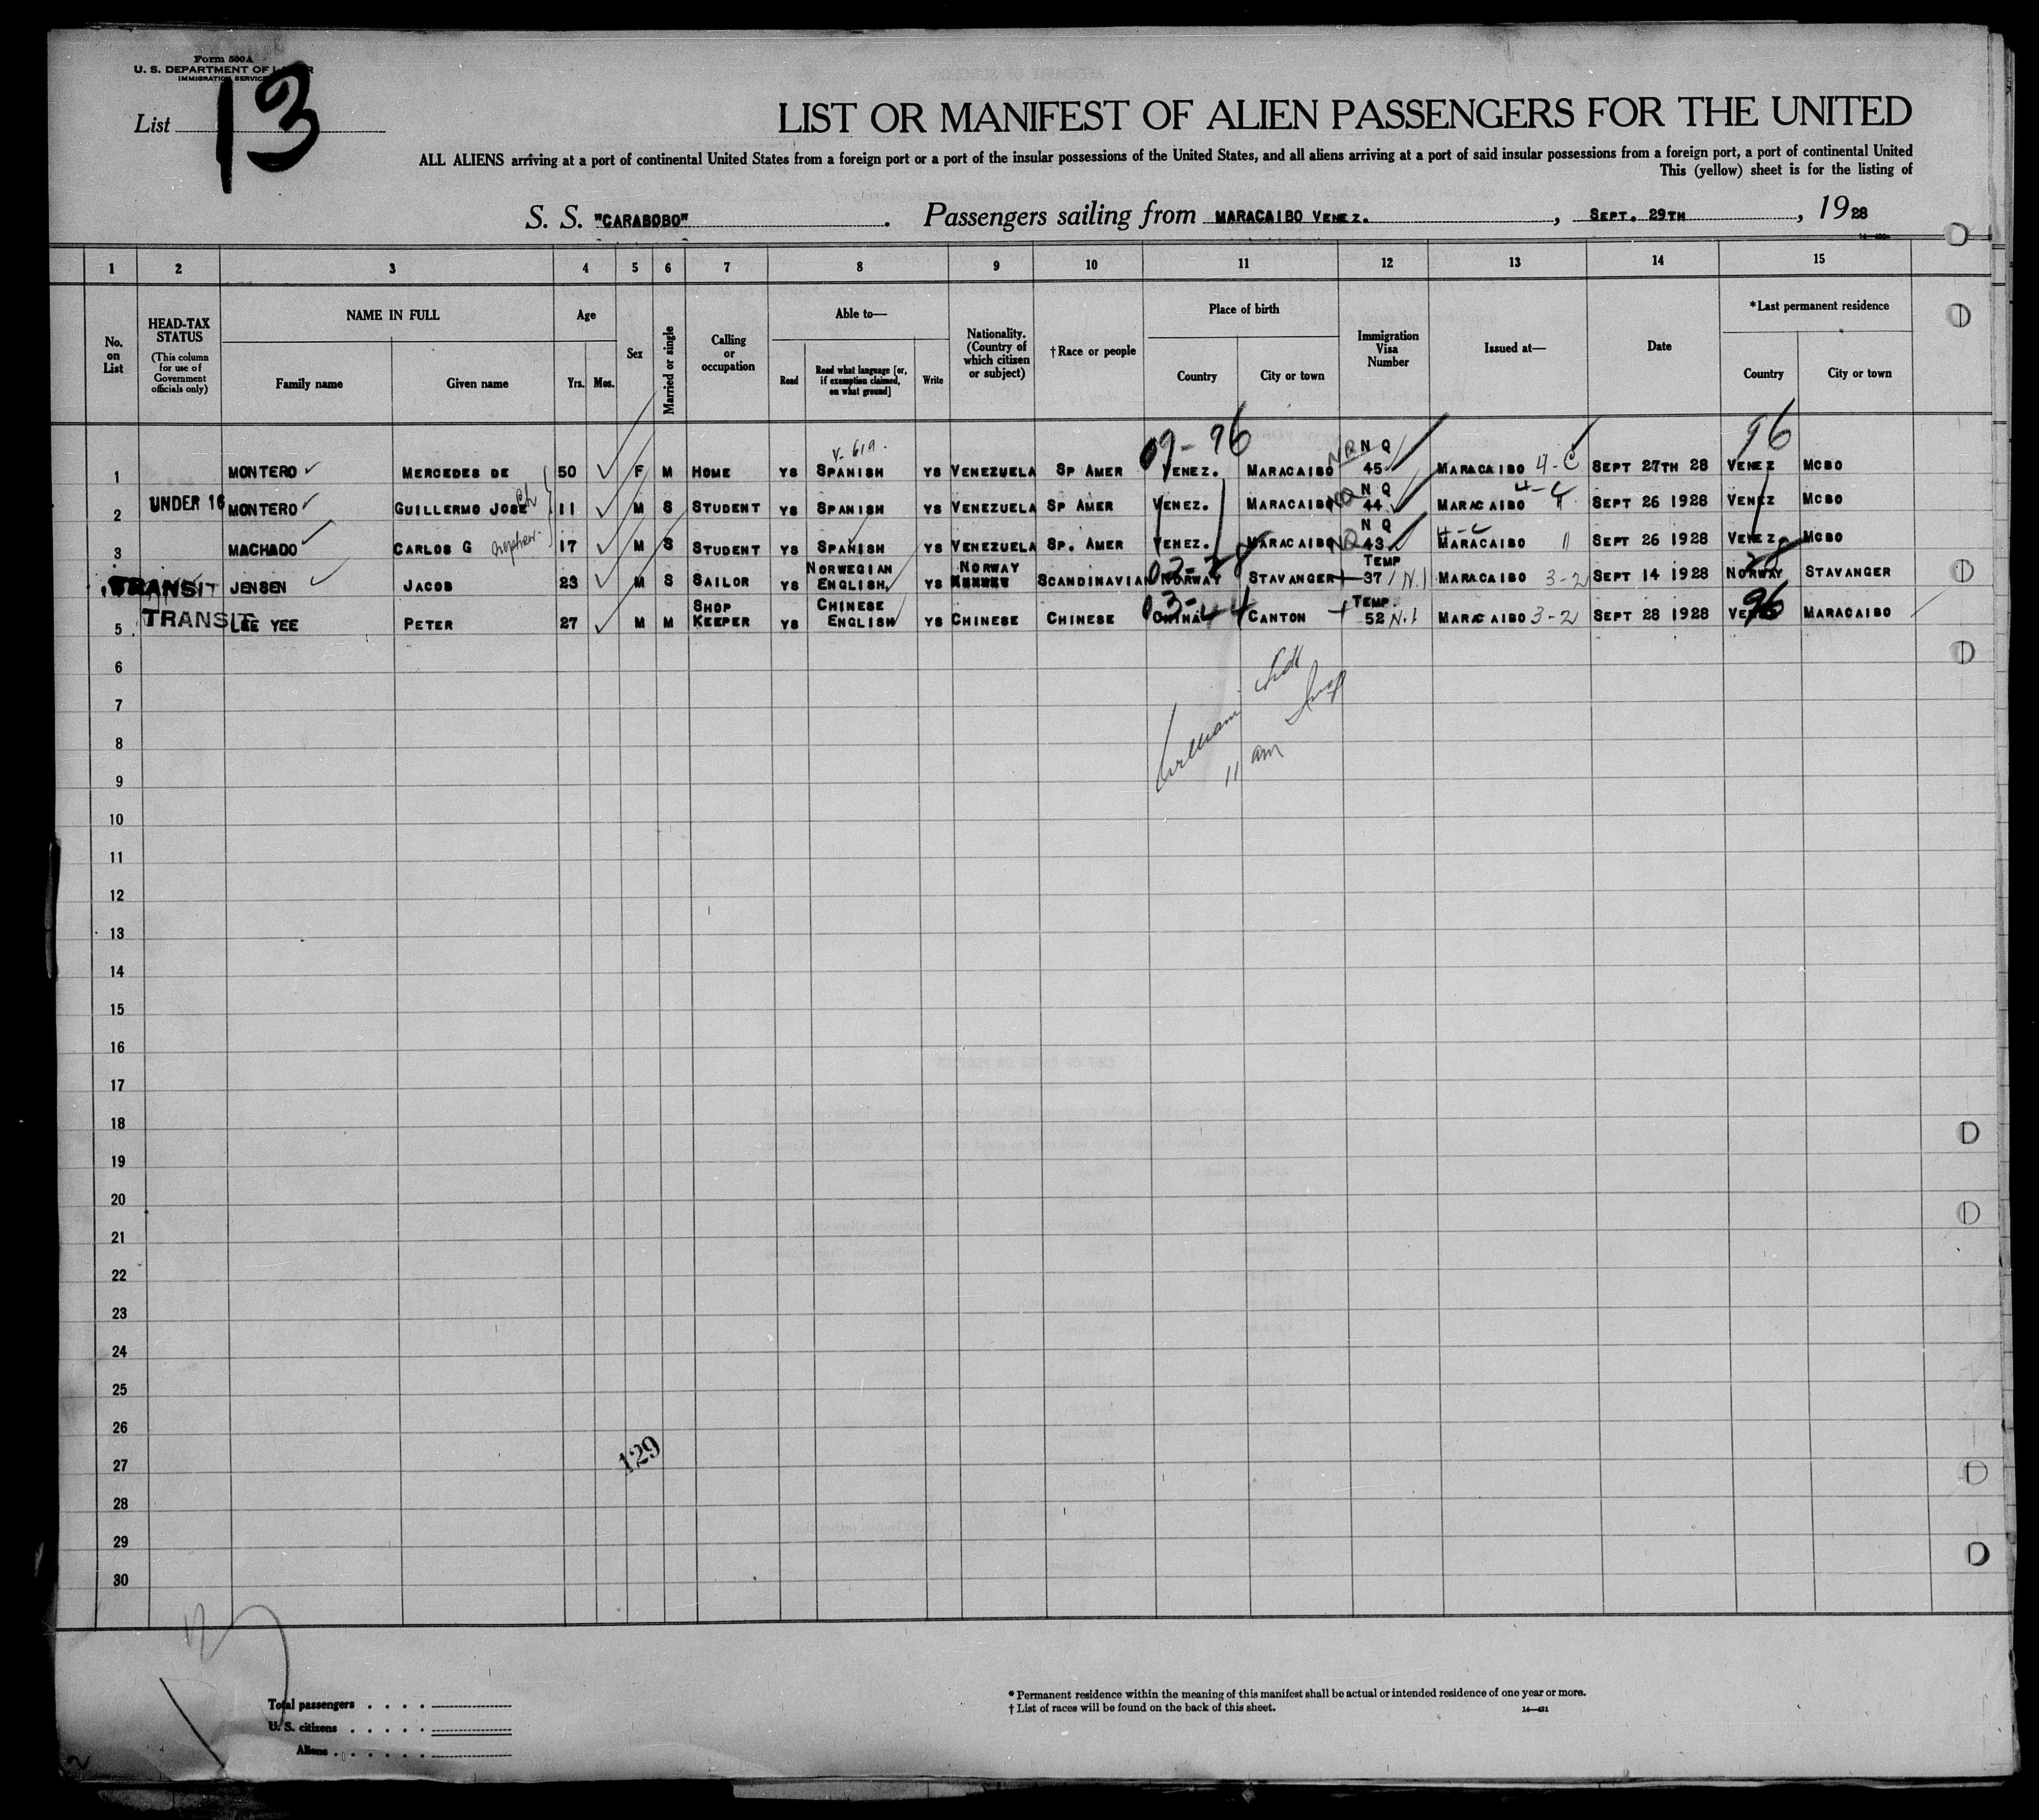 Form 500A
U. S. DEPARTMENT OF LABOR
IMMIGRATION SERVICE
List 13
LIST OR MANIFEST OF ALIEN PASSENGERS FOR THE UNITED
ALL ALIENS arriving at a port of continental United States from a foreign port or a port of the insular possessions of the United States, and all aliens arriving at a port of said insular possessions from a foreign port, a port of continental United
This (yellow) sheet is for the listing of
S. S. "CARABOBO". Passengers sailing from MARACAIBO VENEZ., SEPT. 29TH, 1928
1 2 3 4 5 6 7 8 9 10 11 12 13 14 15
No. on List
HEAD-TAX STATUS (This column for use of Government officials only)
NAME IN FULL Family name Given name
Age Yrs. Mos.
Sex
Married or single
Calling or occupation
Able to— Read Read what language [or, if exemption claimed, on what ground] Write
Nationality. (Country of which citizen or subject)
†Race or people
Place of birth Country City or town
Immigration Visa Number
Issued at—
Date
*Last permanent residence Country City or town
V-619. 09-96 N Q 96
1 MONTERO MERCEDES DE 50 F M HOME YS SPANISH YS VENEZUELA SP AMER VENEZ. MARACAIBO 45 MARACAIBO 4-C SEPT 27TH 28 VENEZ MCBO
N Q
2 UNDER 16 MONTERO GUILLERMO JOSE Ch 11 M S STUDENT YS SPANISH YS VENEZUELA SP AMER VENEZ. MARACAIBO 44 MARACAIBO 4-C SEPT 26 1928 VENEZ MCBO
N Q
3 MACHADO CARLOS G nephew 17 M S STUDENT YS SPANISH YS VENEZUELA SP. AMER VENEZ. MARACAIBO NQ 43 MARACAIBO 4-C SEPT 26 1928 VENEZ. MCBO
NORWEGIAN NORWAY 02-28 TEMP 28
TRANSIT JENSEN JACOB 23 M S SAILOR YS ENGLISH, YS SCANDINAVIAN NORWAY STAVANGER 37 N.1 MARACAIBO 3-2 SEPT 14 1928 NORWAY STAVANGER
SHOP CHINESE 03-44 TEMP. 96
5 TRANSIT LEE YEE PETER 27 M M KEEPER YS ENGLISH YS CHINESE CHINESE CHINA CANTON 52 N.1 MARACAIBO 3-2 SEPT 28 1928 VENEZ MARACAIBO
6
7
8
Insp
11 am
9
10
11
12
13
14
15
16
17
18
19
20
21
22
23
24
25
26
129
27
28
29
30
Total passengers
U. S. citizens
Aliens
* Permanent residence within the meaning of this manifest shall be actual or intended residence of one year or more.
† List of races will be found on the back of this sheet.
14—431